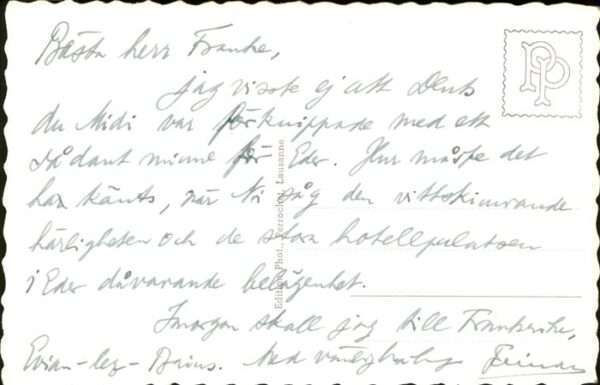 Bästa herr Franke,
jag visste ej att Dents
du Midi var förknippade med ett
sådant minne för Eder. Hur måste det
ha känts, när Ni såg den vittskimrande
härligheten och de stora hotellpalatsen
i Eder dåvarande belägenhet.
Imorgon skall jag till Frankrike,
Evian-les-Bains. Med vänlig
Edition Phot. Perrochet, Lausanne